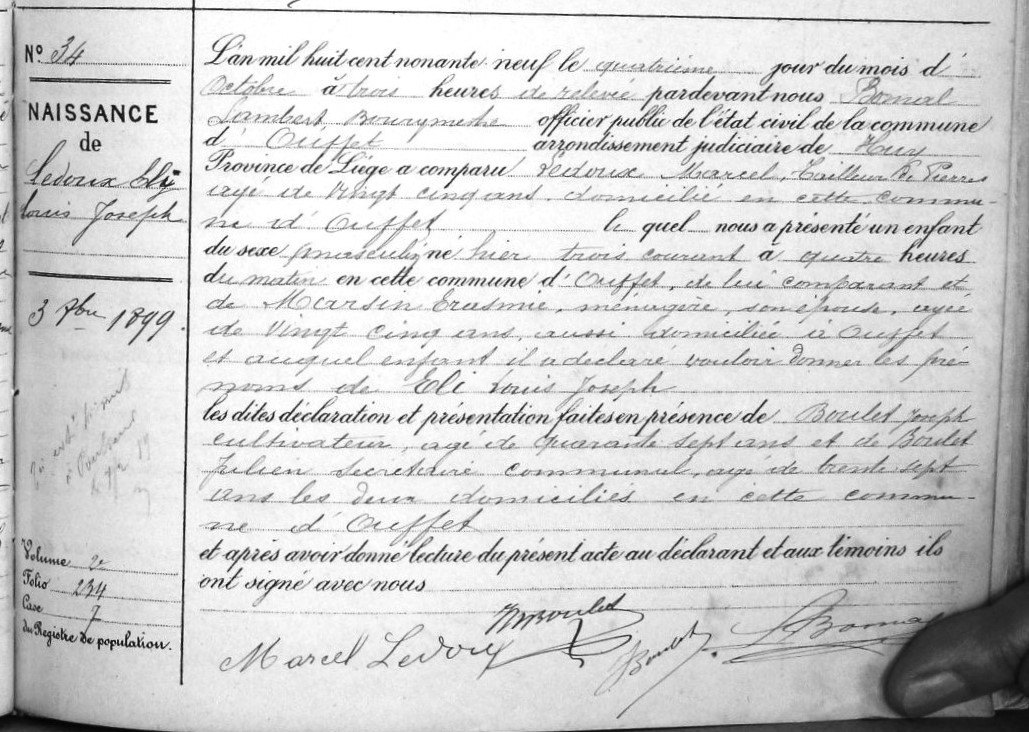 N° 34
NAISSANCE
de
Ledoux Eli
Louis Joseph
3 8bre 1899.
Volume 2e
Folio 234
Case 7
du Registre de population.
L'an mil huit cent nonante neuf le quatrième jour du mois d'
Octobre à trois heures de relevée pardevant nous Bomal
Lambert, Bourgmestre officier public de l'état civil de la commune
d' Ouffet arrondissement judiciaire de Huy
Province de Liége a comparu Ledoux Marcel, Tailleur de Pierres
agé de Vingt cinq ans, domicilié en cette commu-
ne d' Ouffet le quel nous a présenté un enfant
du sexe masculin né hier trois courant à quatre heures
du matin en cette commune d' Ouffet, de lui comparant et
de Marsin Erasmie, ménagère, son épouse, agée
de Vingt cinq ans, aussi domiciliée à Ouffet
et auquel enfant il a déclaré vouloir donner les pré-
noms de Eli Louis Joseph
les dites déclaration et présentation faites en présence de Boulet Joseph
cultivateur, agé de quarante sept ans et de Boulet
Julien secrétaire communal, agé de trente sept
ans les deux domiciliés en cette commu-
ne d' Ouffet
et après avoir donné lecture du présent acte au déclarant et aux témoins ils
ont signé avec nous
Boulet
Marcel Ledoux
JBoulet
LBomal